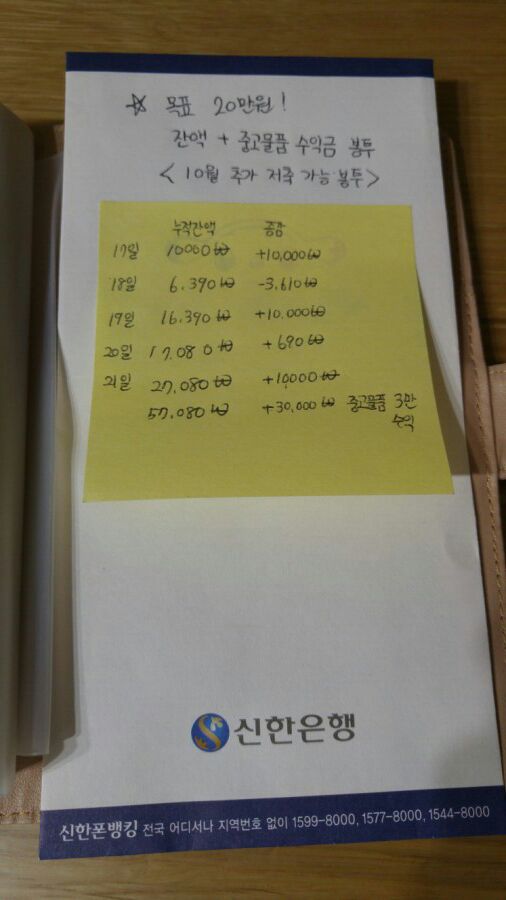 ☆ 목표 20만원!
잔액 + 중고물품 수익금 봉투
<10월 추가 저축 가능 봉투>
누적잔액 증감
17일 10000₩ +10,000₩
18일 6.390₩ -3.610₩
19일 16.390₩ +10.000₩
20일 17.080₩ +690₩
21일 27,080₩ +10,000₩
57,080₩ +30,000₩ 중고물품 3만
수익
신한은행
신한폰뱅킹 전국 어디서나 지역번호 없이 1599-8000, 1577-8000, 1544-8000